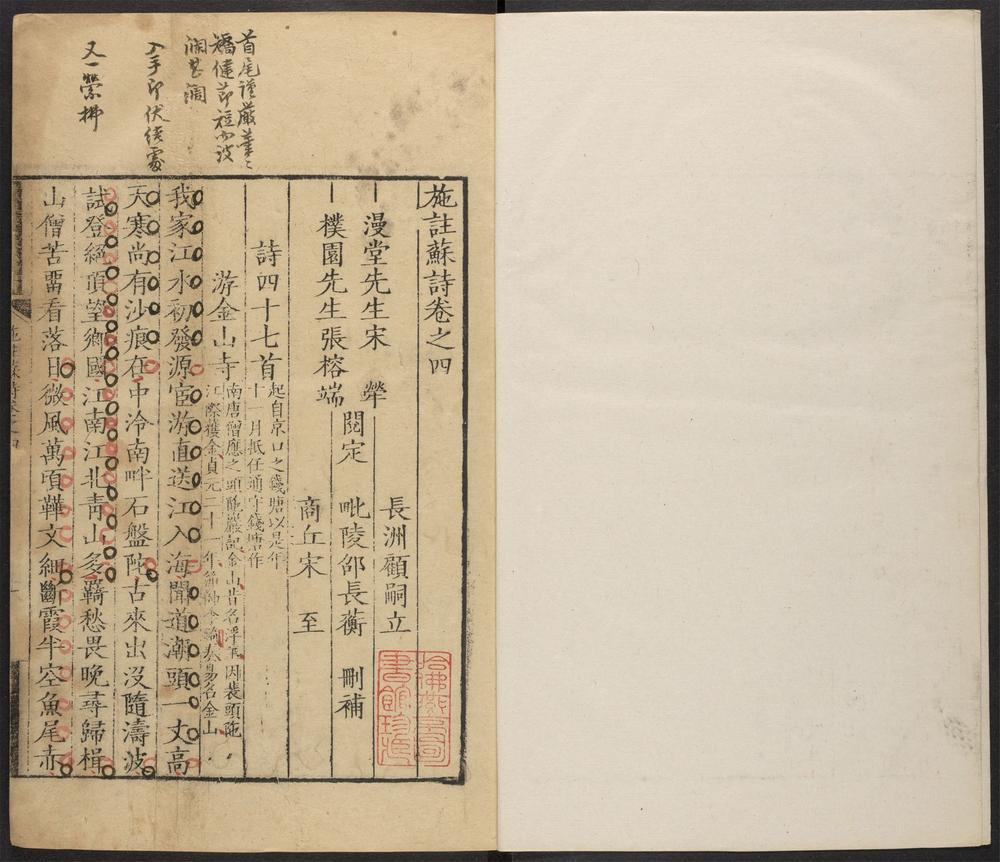 施註蘇詩卷之四
漫堂先生宋犖
樸園先生張榕端
閱定
長洲顧嗣立
毗陵邵長蘅
商丘宋至
刪補
詩四十七首
起自京口之錢塘以是年
十一月抵任通守錢塘作
游金山寺
南唐僧應之頭陁巖記金山昔名浮玉因裴頭陁
江際獲金貞元二十一年節帥李錡奏易名金山
我家江水初發源宦游直送江入海聞道潮頭一丈高
天寒尚有沙痕在中泠南畔石盤陀古來出沒隨濤波
試登絕頂望鄉國江南江北靑山多羇愁畏晚尋歸楫
山僧苦畱看落日微風萬頃鞾文細斷霞半空魚尾赤
首尾謹嚴筆〻
矯健節短而波
瀾甚闊
入手即伏結處
又一縈拂
哈佛燕京圖
書館珍藏